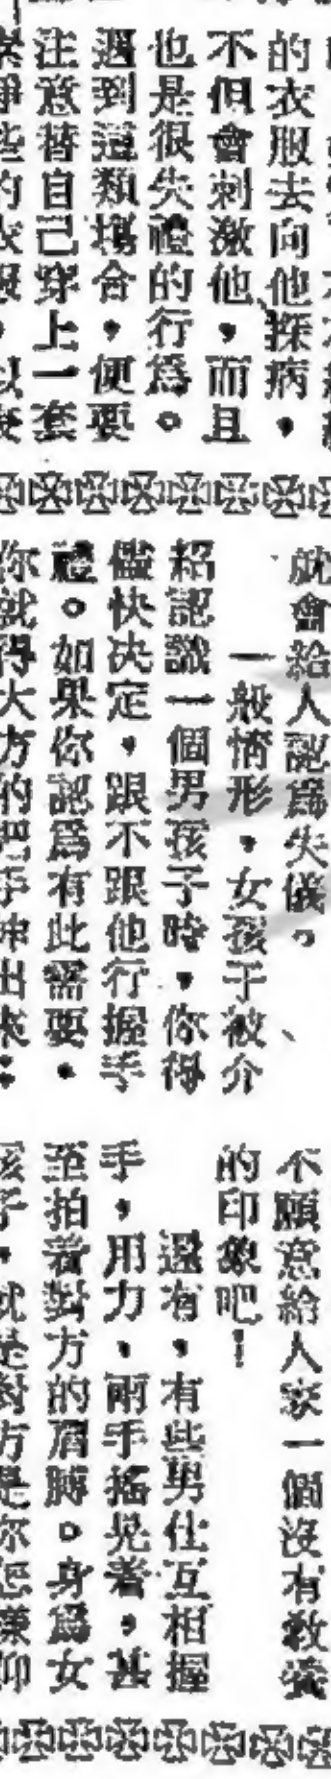 的衣服去向他探病，
不但會刺激他，而且
也是很失禮的行爲。
遇到這類場合，便要
注意替自己穿上一套
就會給人認爲失儀。
一般情形，女孩子被介
紹認識一個男孩子時，你得
儘快決定，跟不跟他行握手
禮。如果你認爲有此需要，
你就得大方的把手伸出來；
不願意給人家一個沒有敎養
的印象吧！
還有，有些男仕互相握
手，用力，兩手搖晃着，甚
至拍着對方的肩膊。身爲女